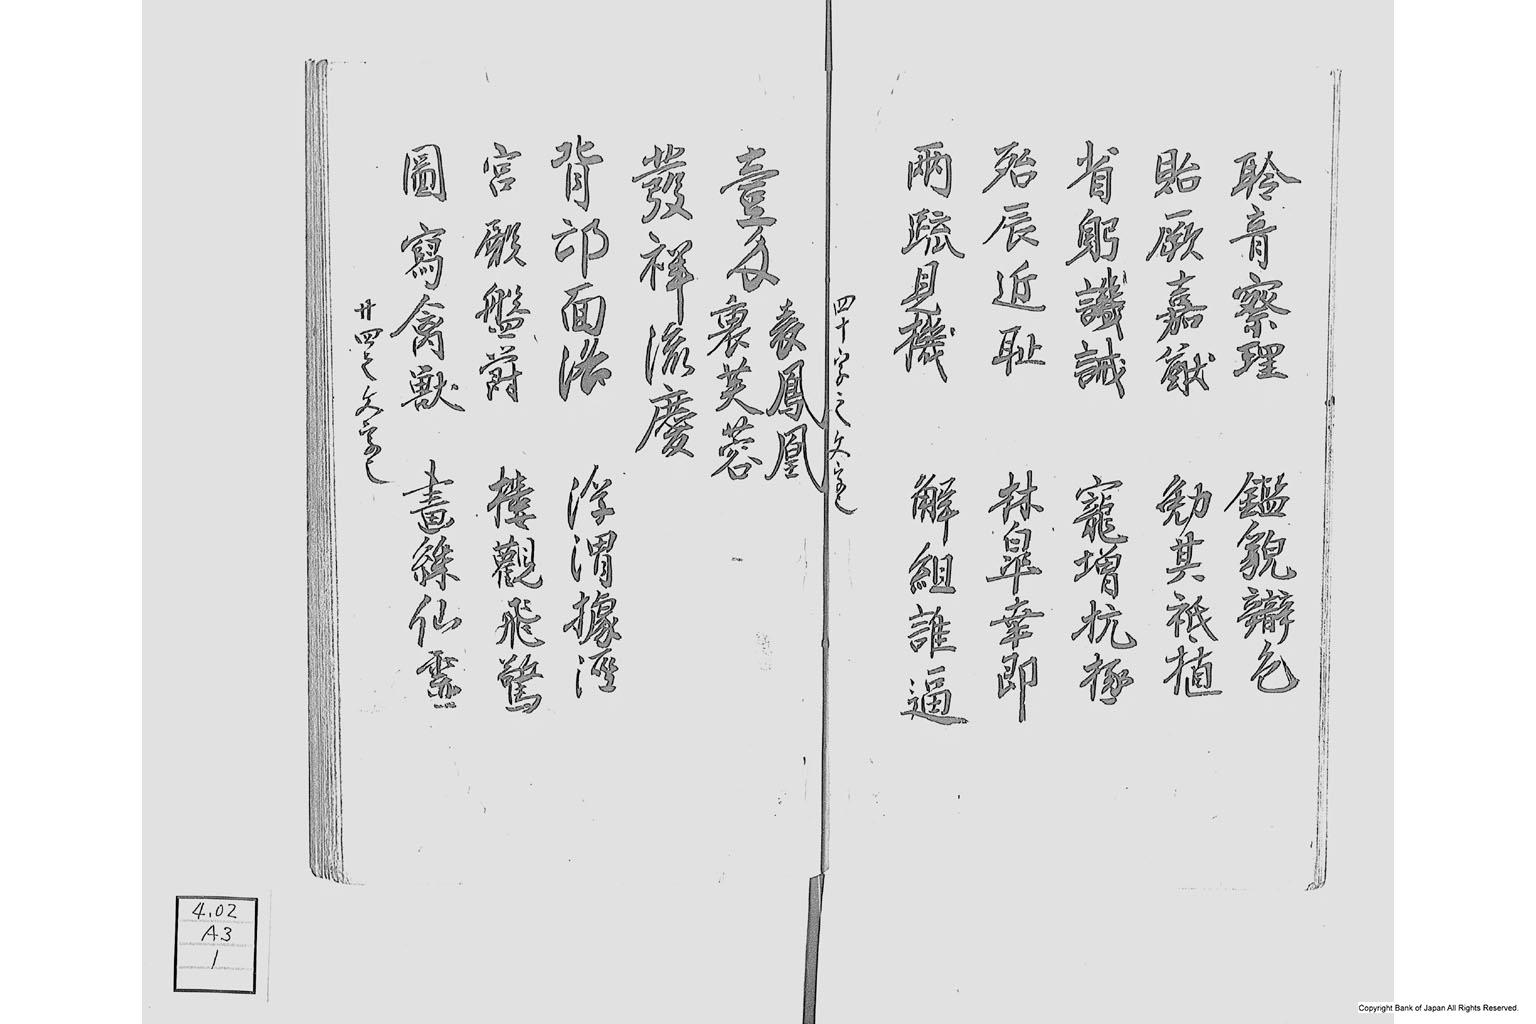 聆音察理　鑑貌辯色
貽厥嘉猷　勉其祗植
省躬譏誡　寵增抗極
殆辰近耻　林皐幸即
兩疏見機　解組誰逼
四十字之文字也
壹文
表鳳凰
裏芙蓉
發祥流慶
背邙面洛　浮渭據涇
宮殿盤欝　樓觀飛驚
圖寫禽獸　畫綵仙靈
廿四之文字也
4.02
A3
1
Copyright Bank of Japan All Rights Reserved.